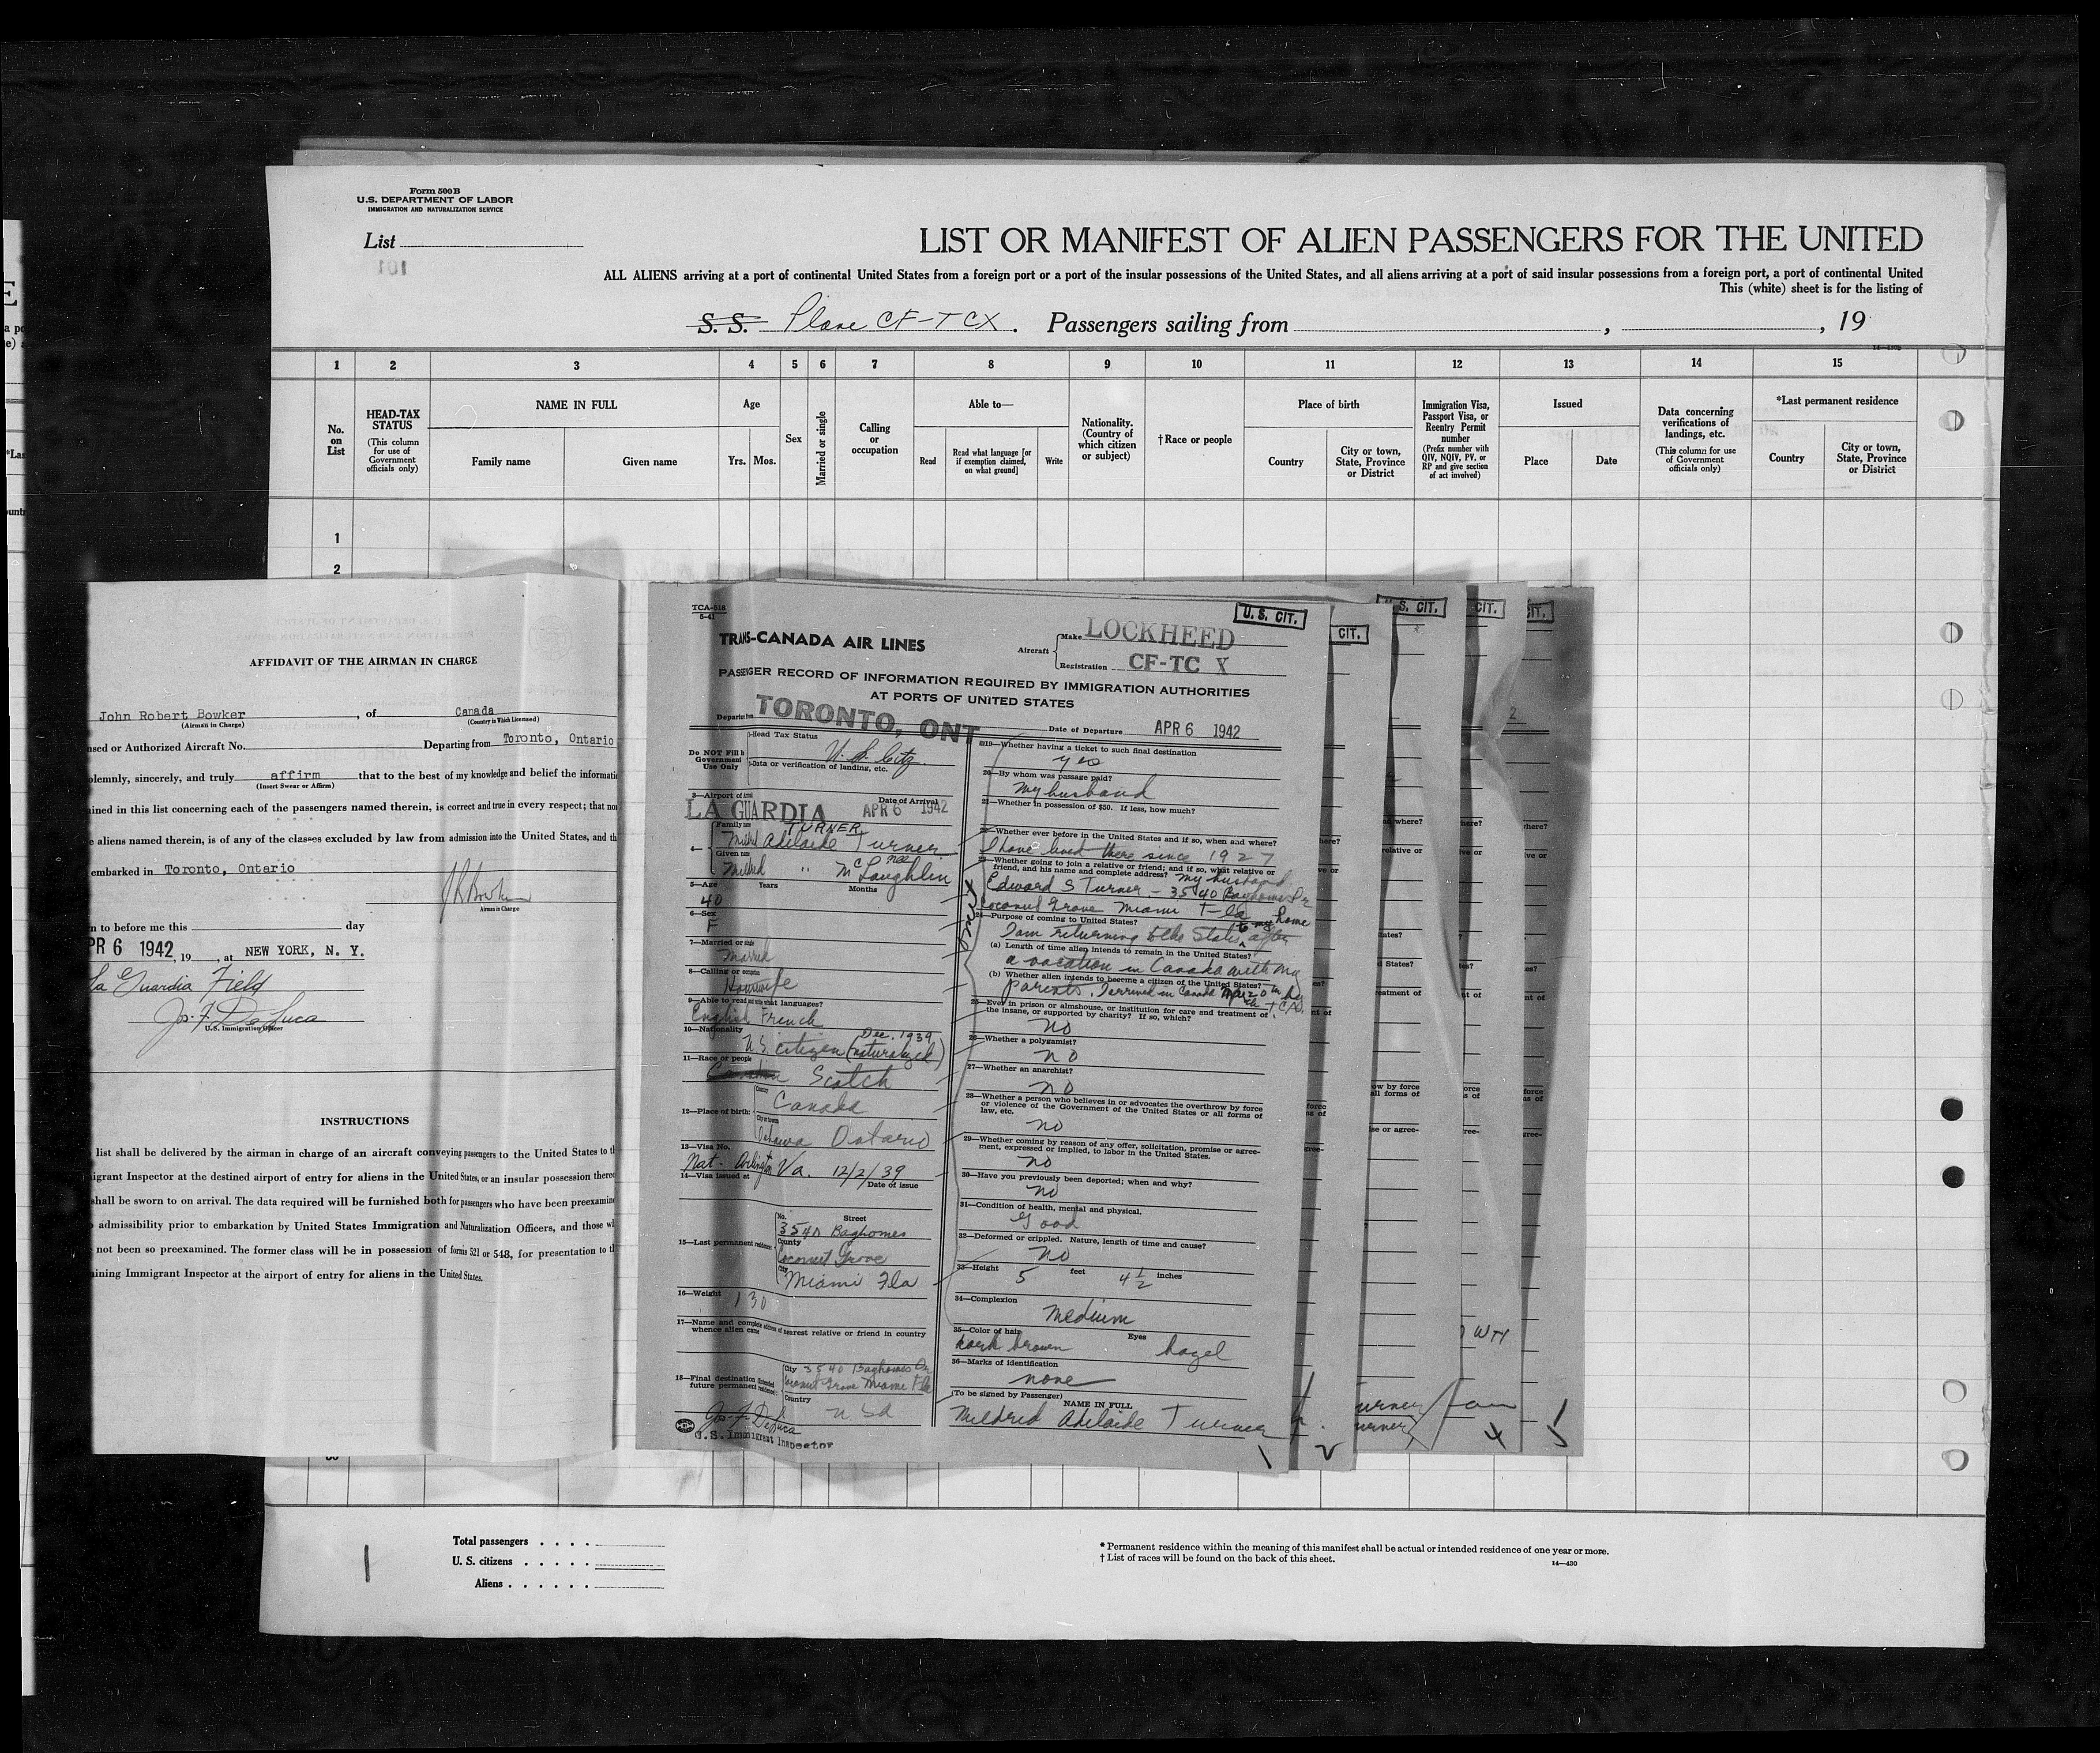 Form 500B
U.S. DEPARTMENT OF LABOR
IMMIGRATION AND NATURALIZATION SERVICE
List
101
LIST OR MANIFEST OF ALIEN PASSENGERS FOR THE UNITED
ALL ALIENS arriving at a port of continental United States from a foreign port or a port of the insular possessions of the United States, and all aliens arriving at a port of said insular possessions from a foreign port, a port of continental United
This (white) sheet is for the listing of
S. S. Plane CF-TCX. Passengers sailing from , , 19
1 2 3 4 5 6 7 8 9 10 11 12 13 14 15
No. on List
HEAD-TAX STATUS
(This column for use of Government officials only)
NAME IN FULL
Family name Given name
Age
Yrs. Mos.
Sex
Married or single
Calling or occupation
Able to—
Read
Read what language [or if exemption claimed, on what ground]
Write
Nationality. (Country of which citizen or subject)
†Race or people
Place of birth
Country
City or town, State, Province or District
Immigration Visa, Passport Visa, or Reentry Permit number
(Prefix number with QIV, NQIV, PV, or RP and give section of act involved)
Issued
Place Date
Data concerning verifications of landings, etc.
(This column for use of Government officials only)
*Last permanent residence
Country
City or town, State, Province or District
1
2
AFFIDAVIT OF THE AIRMAN IN CHARGE
John Robert Bowker, of Canada
(Airman in Charge) (Country in Which Licensed)
or Authorized Aircraft No. Departing from Toronto, Ontario
sincerely, and truly affirm that to the best of my knowledge and belief the
(Insert Swear or Affirm)
in this list concerning each of the passengers named therein, is correct and true in every respect; that
aliens named therein, is of any of the classes excluded by law from admission into the United States, and
embarked in Toronto, Ontario
J R Bowker
Airman in Charge
to before me this day
APR 6 1942, 19 , at NEW YORK, N. Y.
La Guardia Field
Jos. F. DeLuca
U.S. Immigration Officer
INSTRUCTIONS
list shall be delivered by the airman in charge of an aircraft conveying passengers to the United States to
Inspector at the destined airport of entry for aliens in the United States, or an insular possession
shall be sworn to on arrival. The data required will be furnished both for passengers who have been
admissibility prior to embarkation by United States Immigration and Naturalization Officers, and those
not been so preexamined. The former class will be in possession of forms 521 or 548, for presentation to
Immigrant Inspector at the airport of entry for aliens in the United States.
TCA-518
5-41
U. S. CIT.
TRANS-CANADA AIR LINES
Aircraft Make LOCKHEED
Registration CF-TC X
PASSENGER RECORD OF INFORMATION REQUIRED BY IMMIGRATION AUTHORITIES
AT PORTS OF UNITED STATES
TORONTO, ONT Date of Departure APR 6 1942
Do NOT Fill in
Government Use Only
1—Head Tax Status
U. S. Citz.
2—Data or verification of landing, etc.
3—Airport of Date of Arrival
LA GUARDIA APR 6 1942
TURNER
Family name
Adelaide Turner
Given name
Mildred " nee McLaughlin
5—Age Years Months
40
6—Sex
F
7—Married or single
Married
8—Calling or occupation
Housewife
9—Able to read and write what languages?
English French
10—Nationality Dec. 1939
U.S. citizen (naturalized)
11—Race or people
Scotch
12—Place of birth:
Country
Canada
City or town
Oshawa Ontario
13—Visa No.
Nat. Arlington Va. 12/2/39
14—Visa issued at Date of issue
15—Last permanent residence:
No. Street
3540 Bayhomes
County
Coconut Grove
City
Miami Fla
16—Weight 130
17—Name and complete address of nearest relative or friend in country
whence alien came
18—Final destination (intended future permanent residence):
City 3540 Bayhomes Dr
Coconut Grove Miami Fla
Country
U. S. A
Jos. F. DeLuca
U.S. Immigrant Inspector
19—Whether having a ticket to such final destination
yes
20—By whom was passage paid?
my husband
21—Whether in possession of $50. If less, how much?
22—Whether ever before in the United States and if so, when and where?
I have lived there since 1927
23—Whether going to join a relative or friend; and if so, what relative or
friend, and his name and complete address? my husband
Edward S Turner - 3540 Bayhomes Dr
Coconut Grove Miami Fla
24—Purpose of coming to United States? to my home
I am returning to the States after
(a) Length of time alien intends to remain in the United States?
a vacation in Canada with my
(b) Whether alien intends to become a citizen of the United States?
parents, I arrived in Canada by
T.C.A.
25—Ever in prison or almshouse, or institution for care and treatment of
the insane, or supported by charity? If so, which?
no
26—Whether a polygamist?
no
27—Whether an anarchist?
no
28—Whether a person who believes in or advocates the overthrow by force
or violence of the Government of the United States or all forms of
law, etc.
no
29—Whether coming by reason of any offer, solicitation, promise or agree-
ment, expressed or implied, to labor in the United States.
no
30—Have you previously been deported; when and why?
no
31—Condition of health, mental and physical.
Good
32—Deformed or crippled. Nature, length of time and cause?
no
33—Height 5 feet 4 1/2 inches
34—Complexion
medium
35—Color of hair Eyes
dark brown hazel
36—Marks of identification
none
(To be signed by Passenger) NAME IN FULL
Mildred Adelaide Turner
1
2
4
5
CIT.
S. CIT.
CIT.
Total passengers . . . .
U. S. citizens . . . . .
Aliens . . . . . .
* Permanent residence within the meaning of this manifest shall be actual or intended residence of one year or more.
† List of races will be found on the back of this sheet.
14—430